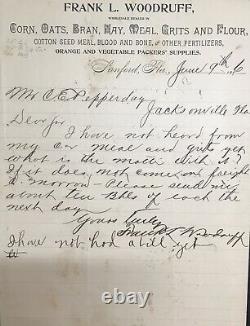 FRANK L. WOODRUFF,
WHOLESALE DEALER IN
CORN, OATS, BRAN, HAY, MEAL, GRITS AND FLOUR,
COTTON SEED MEAL, BLOOD AND BONE, AND OTHER FERTILIZERS,
ORANGE AND VEGETABLE PACKERS' SUPPLIES.
Sanford, Fla. June 9th 6
Mr C.E. Pepperday
Jacksonville Fla
Dear Sir
I have not heard from
my car meal and grits yet
what is the matter with it?
If it does not come on freight
to-morrow Please send me
about ten Bbls of each the
next day
Yours truly
Frank L Woodruff
I have not had a bill yet
W
hakes.com